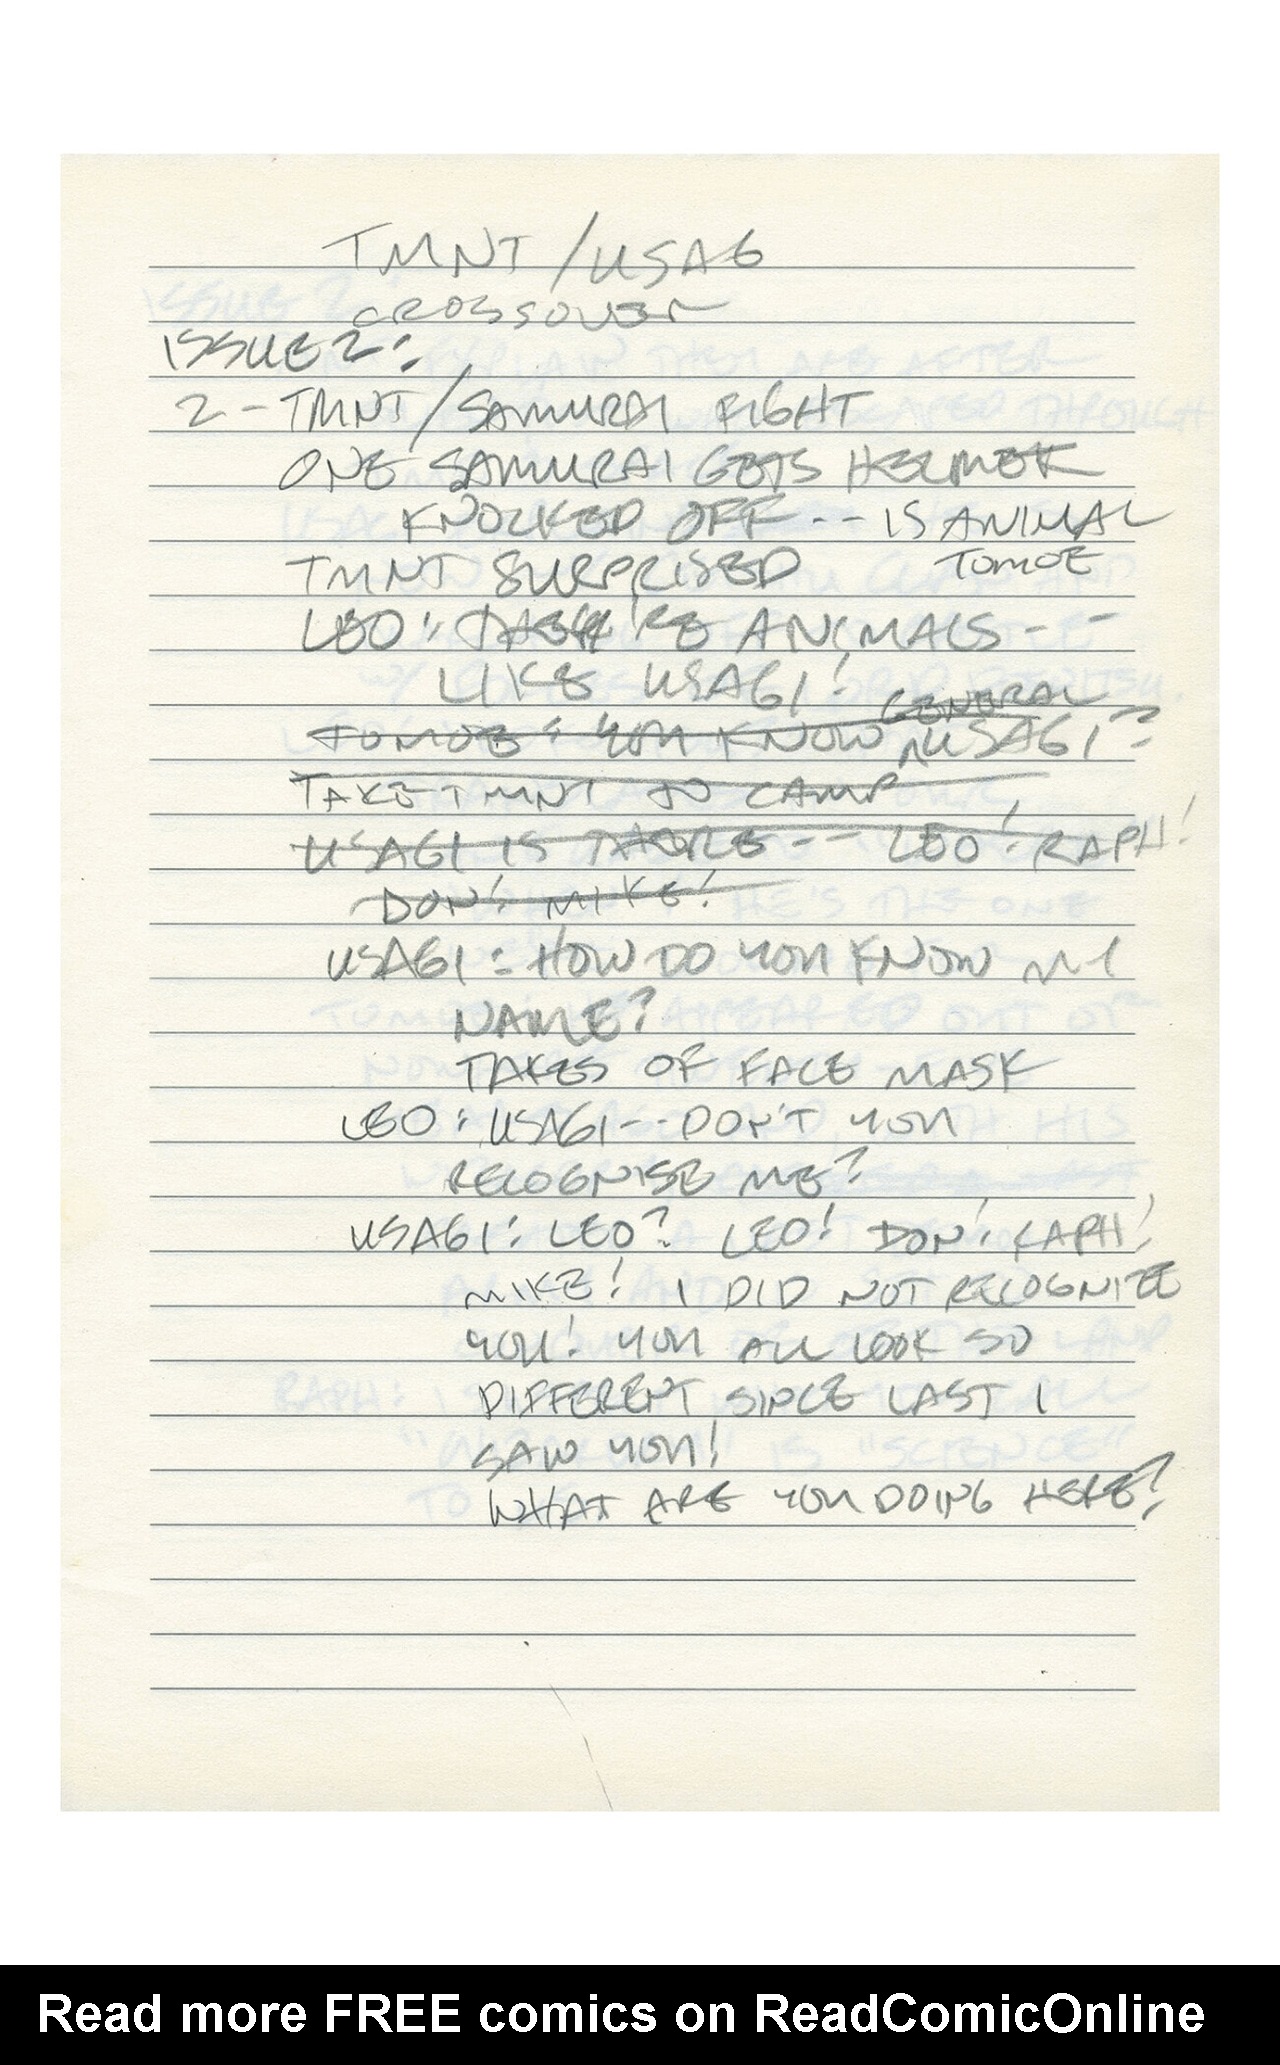 TMNT / USAG
CROSSOVER
ISSUE 2:
2 - TMNT / SAMURAI FIGHT
ONE SAMURAI GETS HELMET
KNOCKED OFF -- IS ANIMAL
TOMOE
TMNT SURPRISED
LEO: 'RE ANIMALS --
LIKE USAGI!
GENERAL
TOMOE: YOU KNOW USAGI?
TAKE TMNT TO CAMP
USAGI IS THERE -- LEO! RAPH!
DON! MIKE!
USAGI: HOW DO YOU KNOW MY
NAME?
TAKES OF FACE MASK
LEO: USAGI -- DON'T YOU
RECOGNISE ME?
USAGI: LEO? LEO! DON! RAPH!
MIKE! I DID NOT RECOGNIZE
YOU! YOU ALL LOOK SO
DIFFERENT SINCE LAST I
SAW YOU!
WHAT ARE YOU DOING HERE?
Read more FREE comics on ReadComicOnline